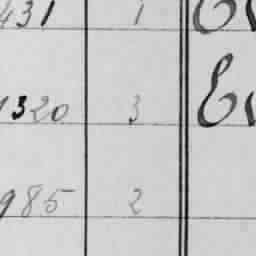 431 1
1320 3 Ev
985 2